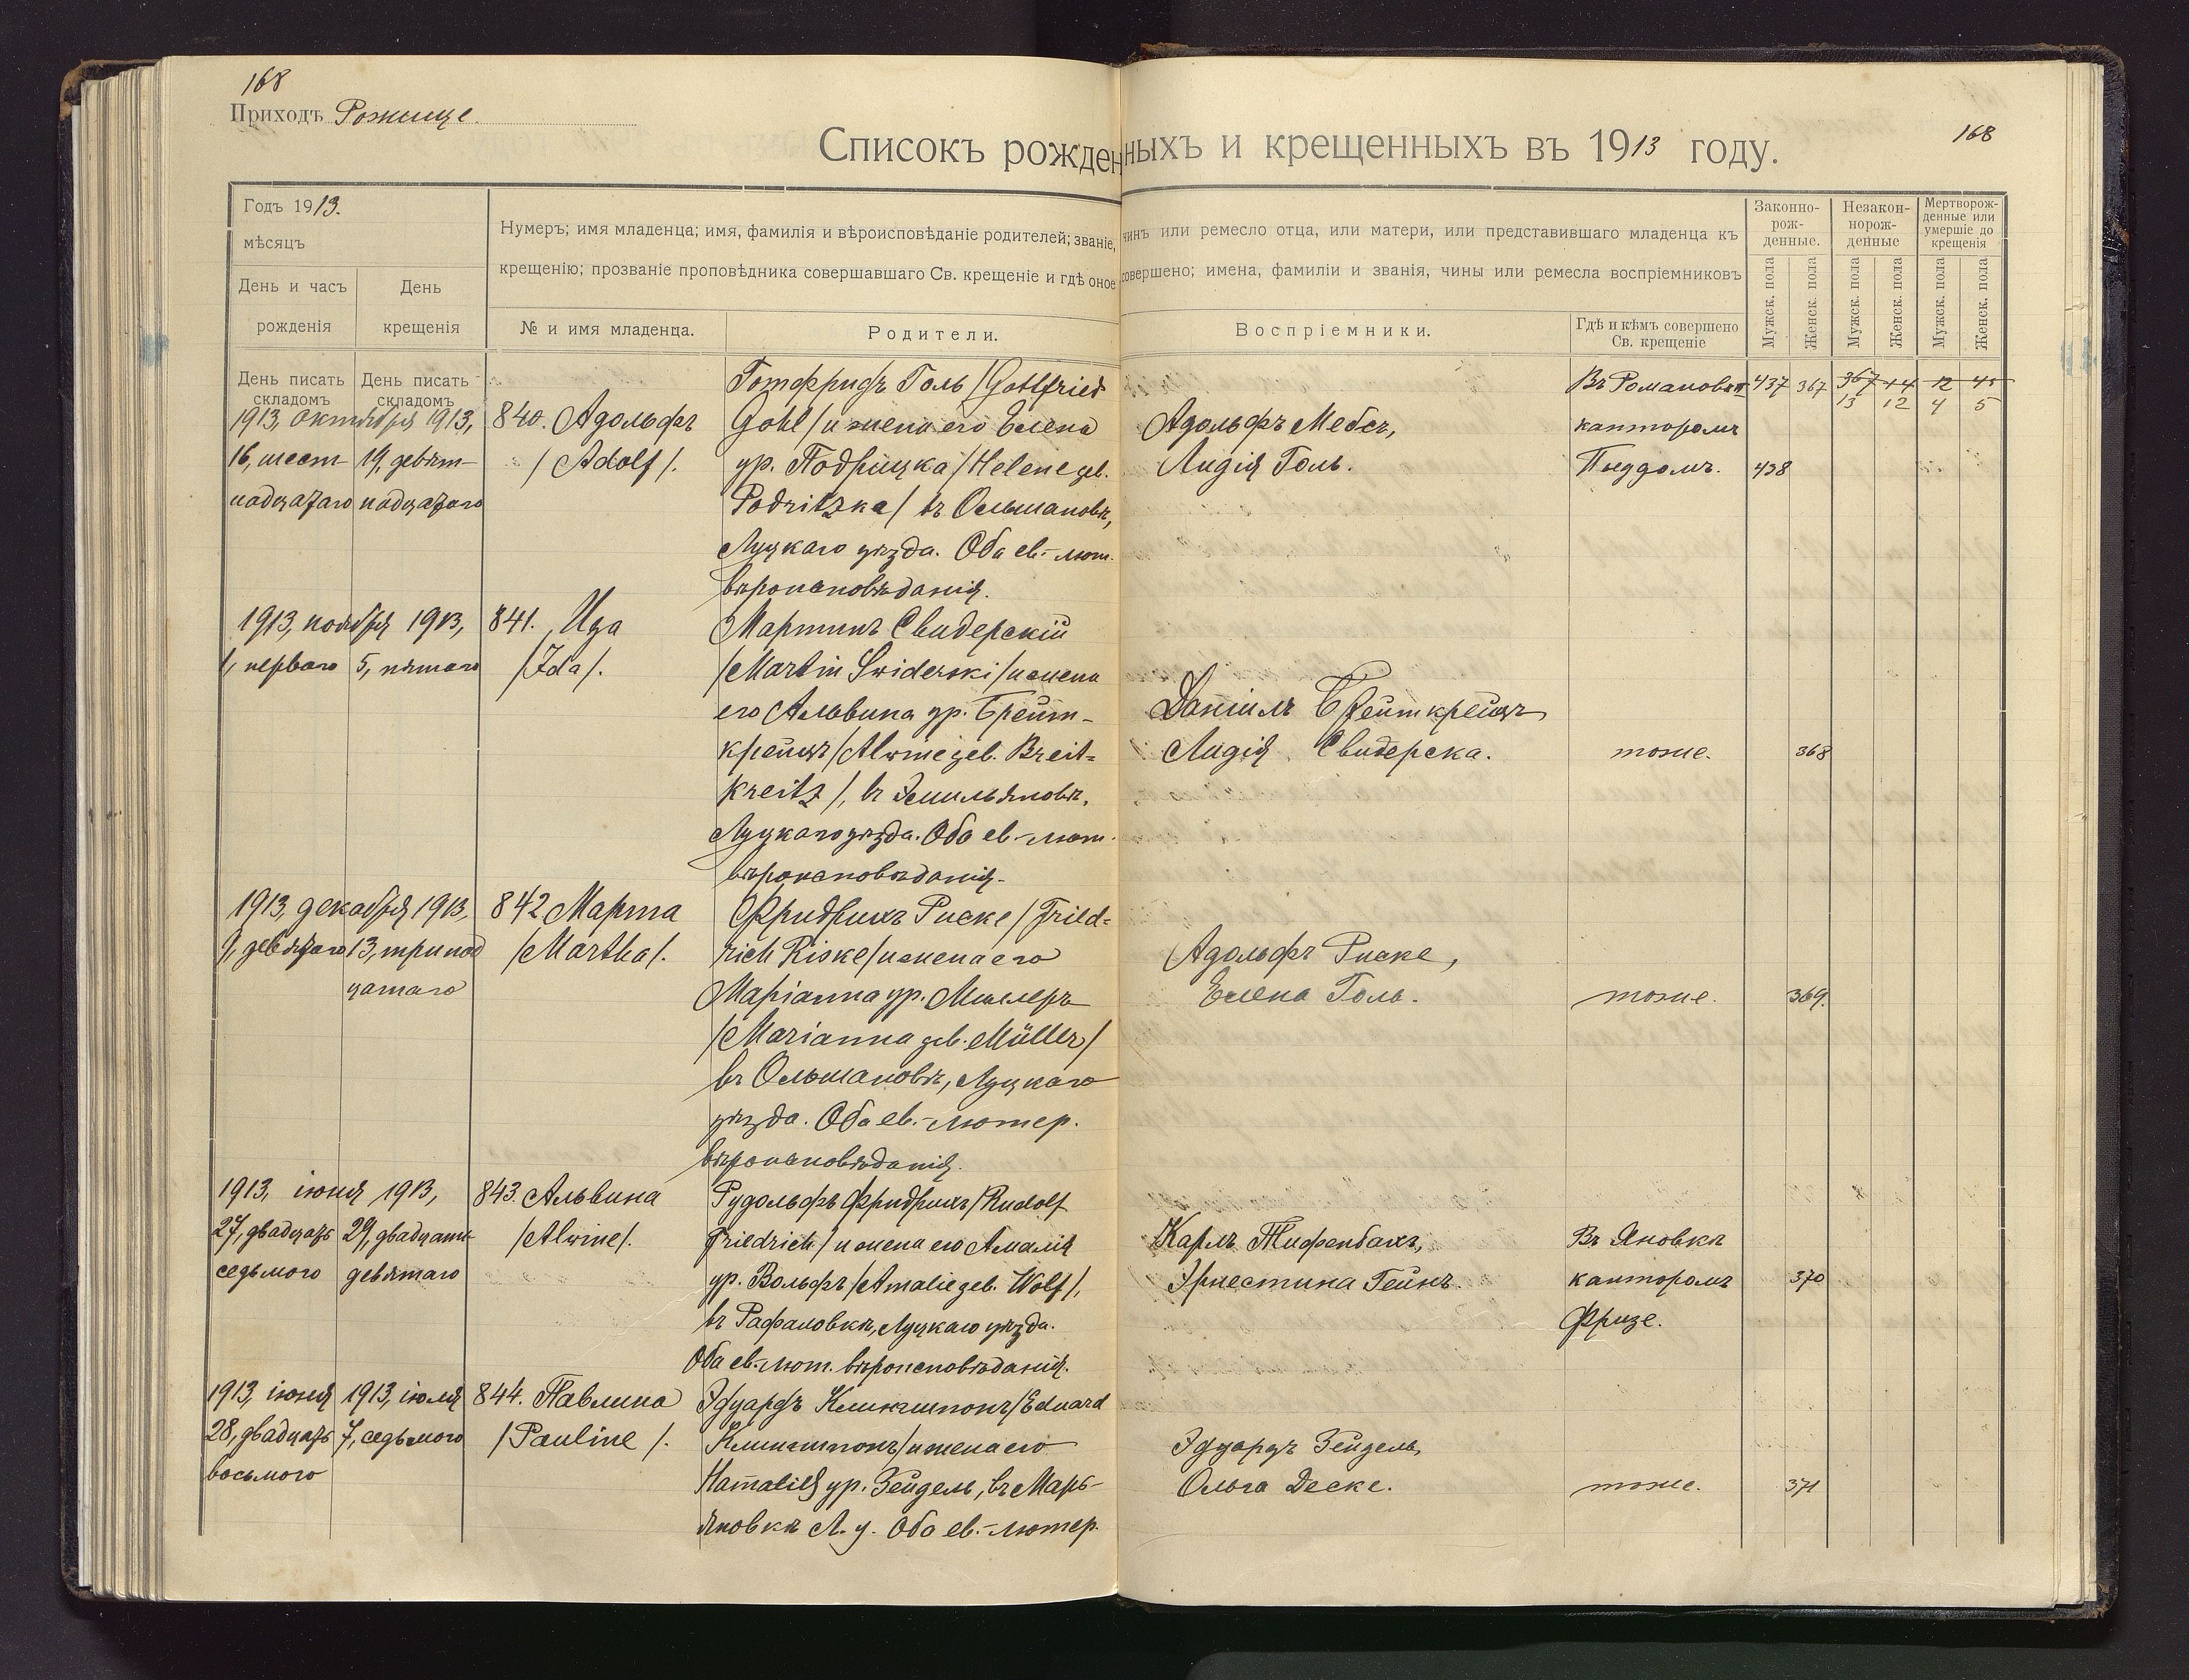 168
Приходъ Рожище.
168
Списокъ рожденныхъ и крещенныхъ въ 1913 году.
Годъ 1913.
мѣсяцъ
День и часъ рожденія
День крещенія
Нумеръ; имя младенца; имя, фамилія и вѣроисповѣданіе родителей; званіе, чинъ или ремесло отца, или матери, или представившаго младенца къ
крещенію; прозваніе проповѣдника совершавшаго Св. крещеніе и гдѣ оное совершено; имена, фамиліи и званія, чины или ремесла воспріемниковъ
№ и имя младенца.
Родители.
Воспріемники.
Гдѣ и кѣмъ совершено
Св. крещеніе
Законно-
рож-
денные.
Незакон-
норож-
денные
Мертворож-
денные или
умершіе до
крещенія
Мужск. пола
Женск. пола
Мужск. пола
Женск. пола
Мужск. пола
Женск. пола
День писать
складомъ
День писать
складомъ
1913, октября 1913,
16, шест- 19, девят-
надцатаго надцатаго
840. Адольфъ
/Adolf/.
Готфридъ Голь /Gottfried
Gohl/ и жена его Елена
ур. Подрицка /Helene geb.
Podritzka/ въ Ольшановѣ,
Луцкаго уѣзда. Оба ев.-лют.
вѣроисповѣданія.
Адольфъ Мебсъ,
Лидія Голь.
Въ Романовкѣ
канторомъ
437 367 367 14 12 45
13 12 4 5
438
1913, ноября 1913,
1, перваго 5, пятаго
841. Ида
/Ida/.
Мартинъ Свидерскій
/Martin Swiderski/ и жена
его Альвина ур. Брейт-
крейцъ /Alwine geb. Breit=
kreitz/, въ Эмильяновѣ,
Луцкаго уѣзда. Оба ев-лют.
вѣроисповѣданія.
Даніилъ Брейткрейцъ
Лидія Свидерска.
тоже.
368
1913, декабря 1913,
9, девятаго 13, тринад
цатаго
842 Марта
/Martha/.
Фридрихъ Риске /Fried=
rich Riske/ и жена его
Маріанна ур. Миллеръ
/Marianna geb. Müller/
въ Ольшановѣ, Луцкаго
уѣзда. Оба ев.-лютер.
вѣроисповѣданія.
Адольфъ Риске,
Елена Голь.
тоже.
369.
1913, іюня 1913,
27, двадцать 29, двадцать
седьмого девятаго
843. Альвина
/Alwine/.
Рудольфъ Фридрихъ /Rudolf
Friedrich/ и жена его Амалія
ур. Вольфъ /Amalie geb. Wolf/,
въ Рафаловкѣ, Луцкаго уѣзда.
Оба ев.-лют. вѣроисповѣданія.
Карлъ Тифенбахъ,
Эрнестина Гейнъ.
Въ Яновкѣ
канторомъ
Фризе.
370
1913, іюня 1913, іюля
28, двадцать 7, седьмого
восьмого
844. Павлина
/Pauline/.
Эдуардъ /Eduard
и жена его
ур. Зейдель, въ Марь-
яновкѣ Л. у. Оба ев.-лютер.
Эдуардъ Зейдель,
Ольга Деске.
тоже.
371